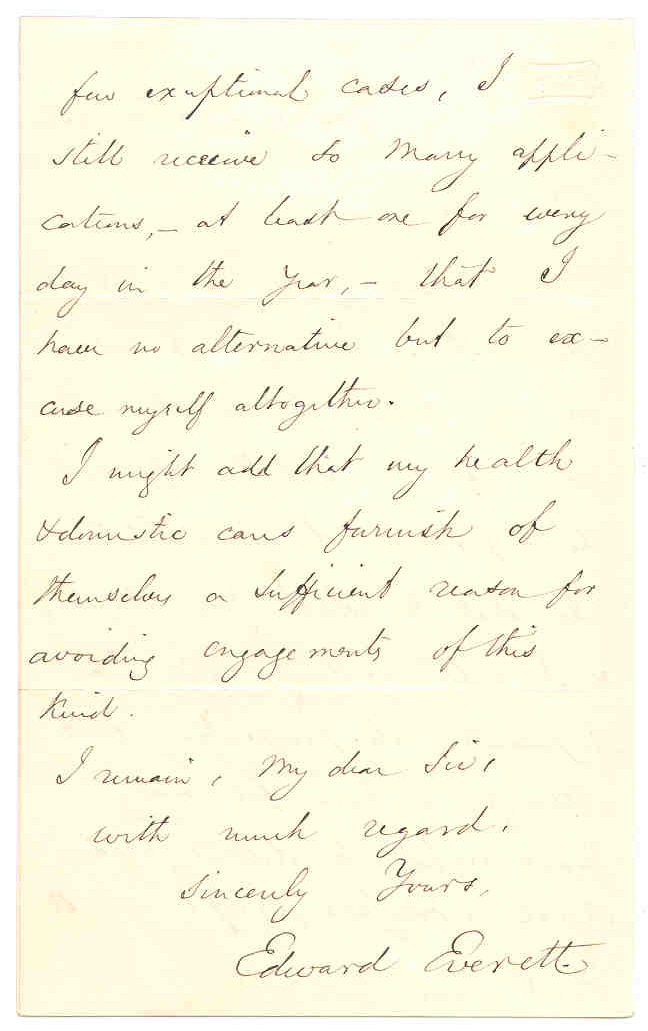 few exceptional cases, I
still receive so many appli-
cations, - at least one for every
day in the year, - that I
have no alternative but to ex-
cuse myself altogether.
I might add that my health
& domestic cares furnish of
themselves a sufficient reason for
avoiding engagements of this
kind.
I remain, My dear Sir,
with much regard,
sincerely Yours,
Edward Everett.